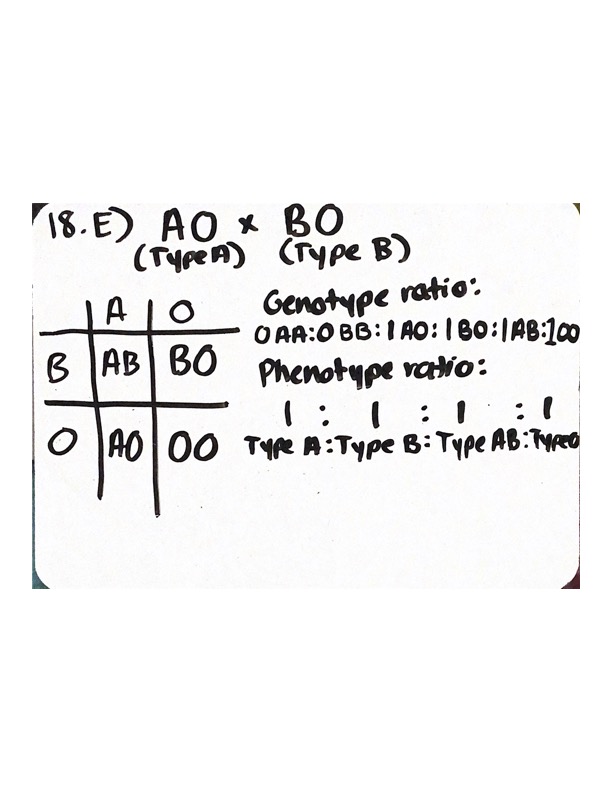 18.E) AO × BO
(Type A) (Type B)
A O
B AB BO
O AO OO
Genotype ratio:
0 AA:0 BB:1 AO:1 BO:1 AB:1 OO
Phenotype ratio:
1 : 1 : 1 : 1
Type A:Type B:Type AB:Type O